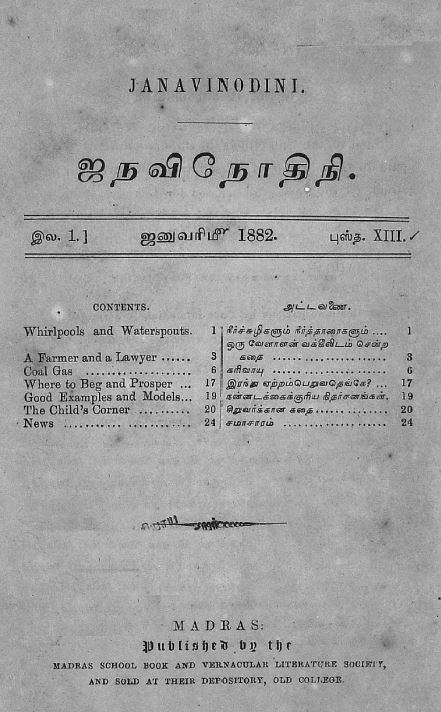 JANAVINODINI.
ஜநவிநோதிநி.
இல. 1.] ஜனுவரி௴ 1882. புஸ்த. XIII.
CONTENTS.
Whirlpools and Waterspouts. 1
A Farmer and a Lawyer ...... 3
Coal Gas .................. 6
Where to Beg and Prosper ... 17
Good Examples and Models... 19
The Child's Corner .......... 20
News ..................... 24
அட்டவணை.
நீர்ச்சுழிகளும் நீர்த்தாரைகளும் .... 1
ஒரு வேளாளன் வக்கீலிடம் சென்ற
கதை .................. 3
கரிவாயு .................. 6
இரந்து ஏற்றம்பெறுவதெங்கே? ... 17
நன்னடக்கைக்குரிய நிதர்சனங்கள். 19
சிறுவர்க்கான கதை ............. 20
சமாசாரம் .................. 24
MADRAS:
Published by the
MADRAS SCHOOL BOOK AND VERNACULAR LITERATURE SOCIETY,
AND SOLD AT THEIR DEPOSITORY, OLD COLLEGE.